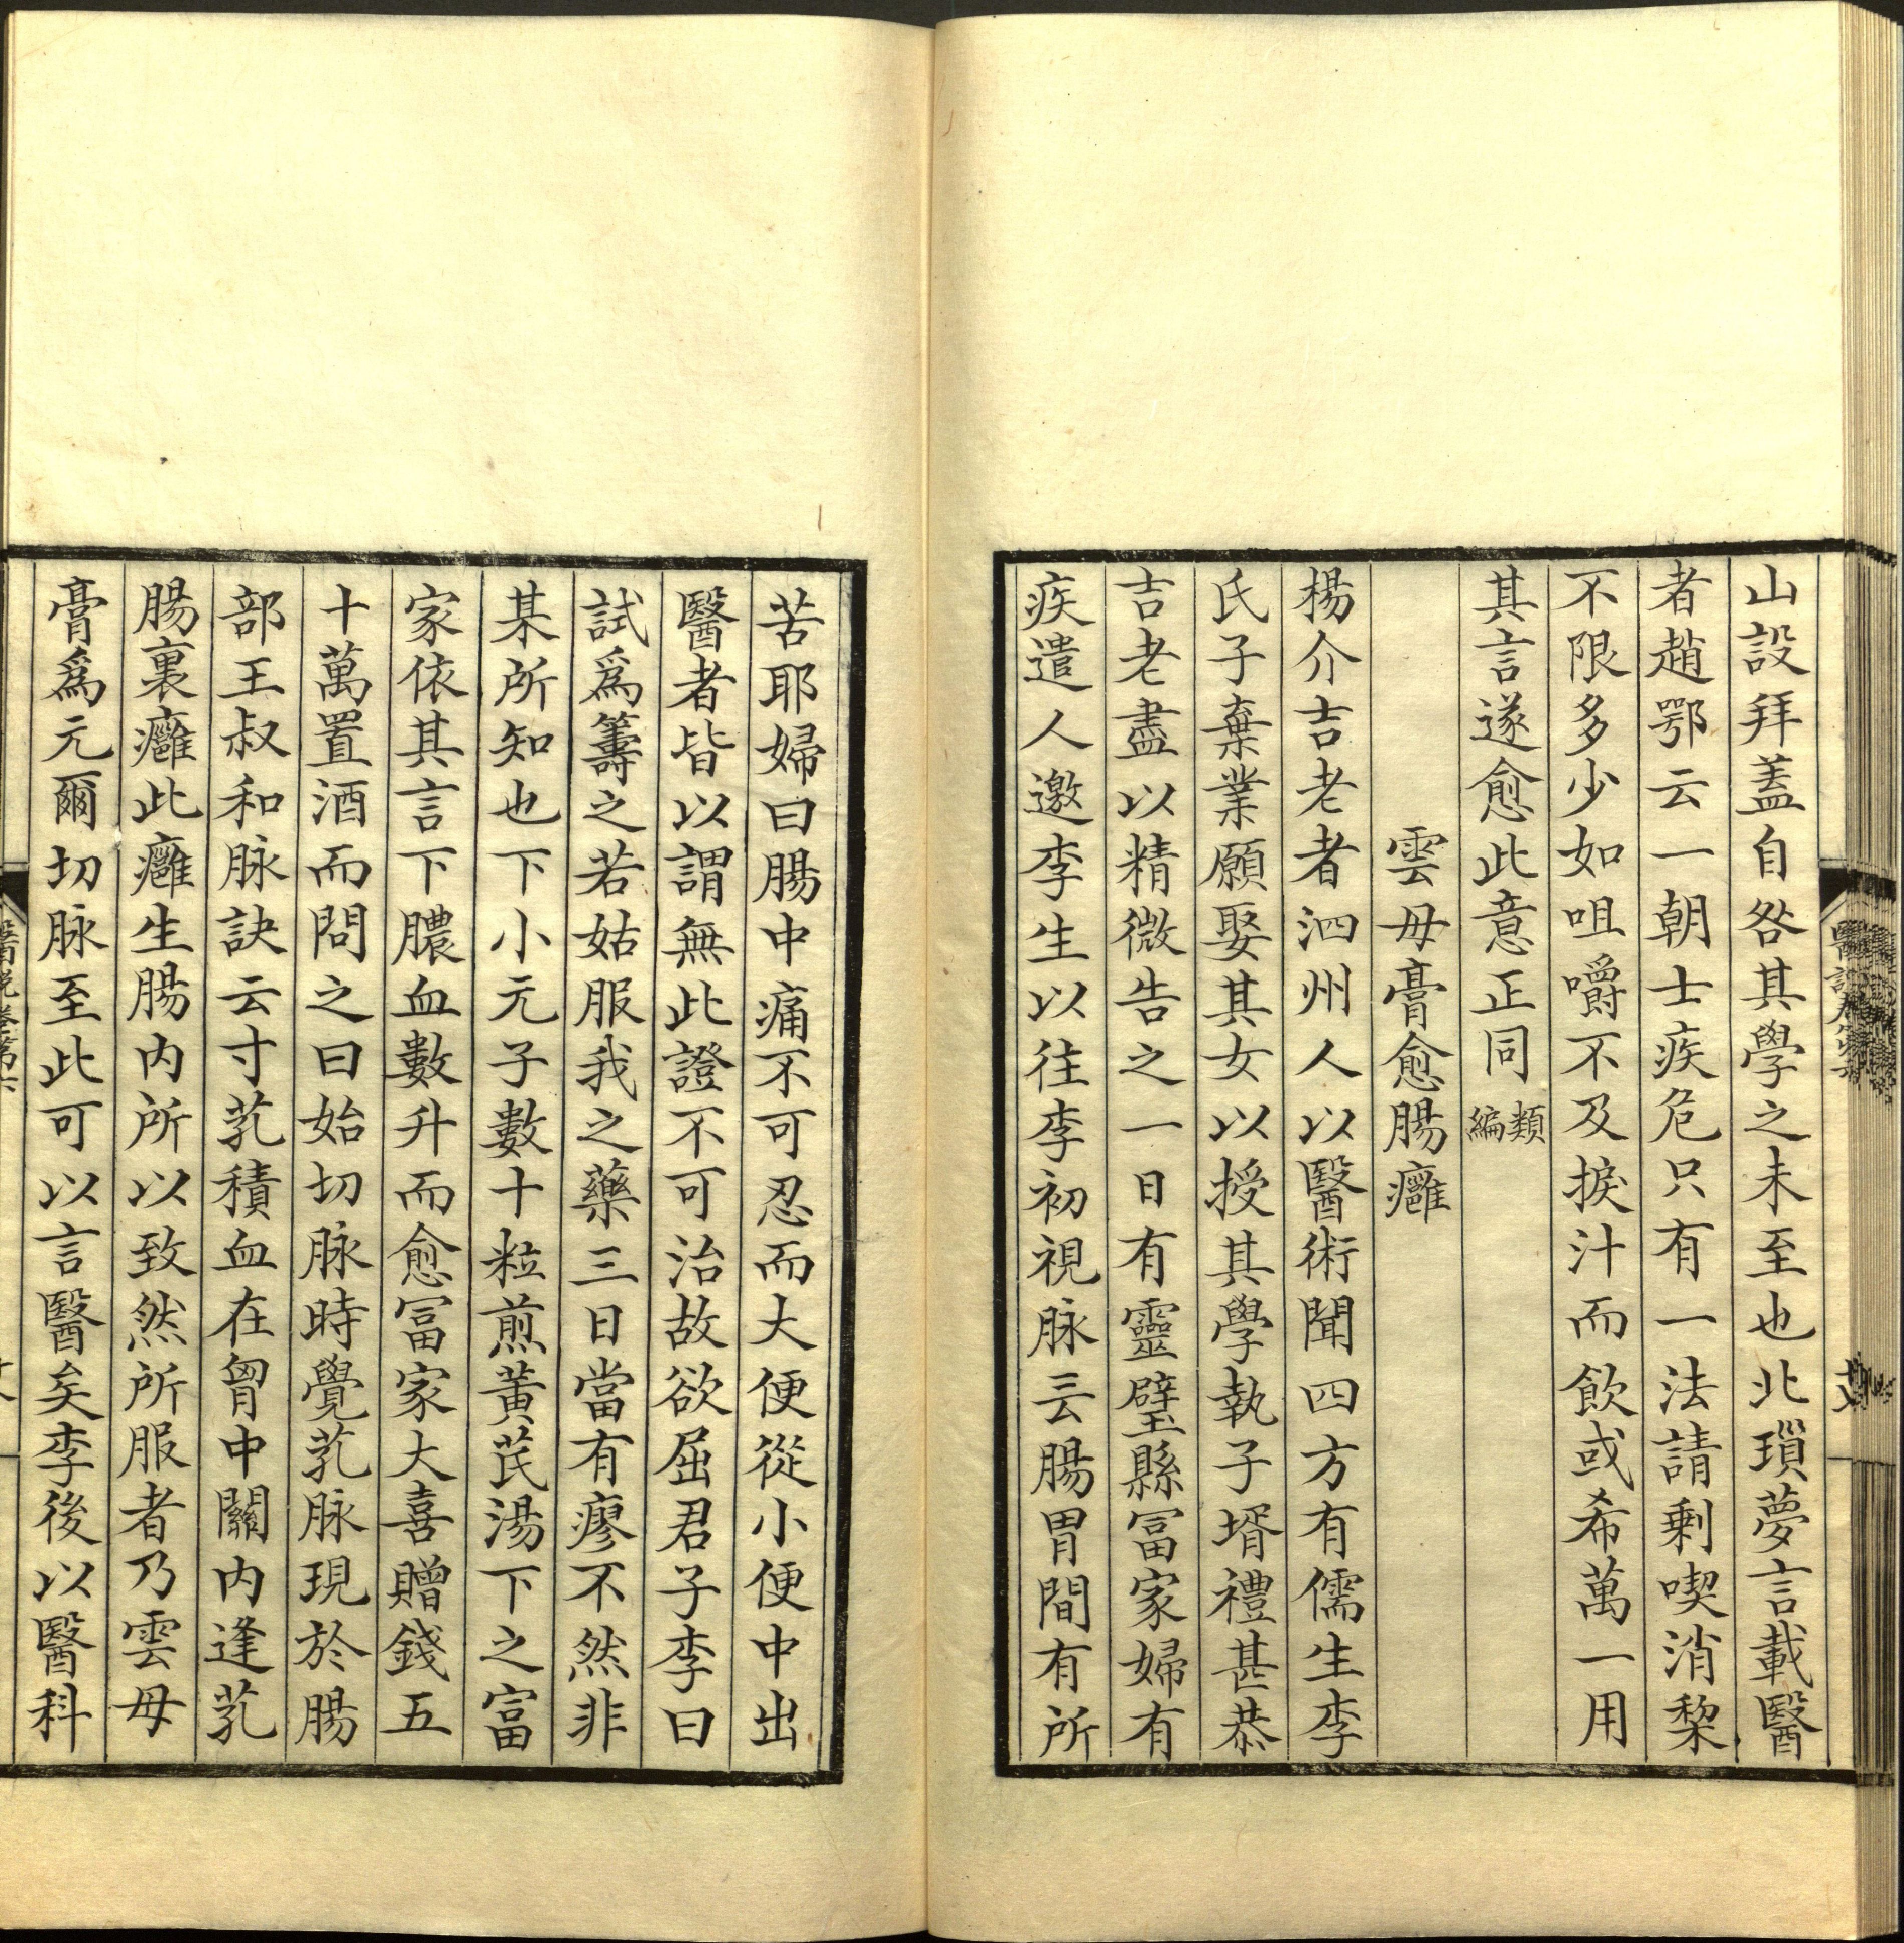 山設拜蓋自咎其學之未至也北瑣夢言載醫
者趙鄂云一朝士疾危只有一法請剩喫消棃
不限多少如咀嚼不及捩汁而飲或希萬一用
其言遂愈此意正同類編
雲母膏愈腸癰
楊介吉老者泗州人以醫術聞四方有儒生李
氏子棄業願娶其女以授其學執子壻禮甚恭
吉老盡以精微告之一日有靈璧縣冨家婦有
疾遣人邀李生以往李初視脉云腸胃間有所
苦耶婦曰腸中痛不可忍而大便從小便中出
醫者皆以謂無此證不可治故欲屈君子李曰
試爲籌之若姑服我之藥三日當有瘳不然非
某所知也下小元子數十粒煎黃芪湯下之富
家依其言下膿血數升而愈冨家大喜贈錢五
十萬置酒而問之曰始切脉時覺芤脉現於腸
部王叔和脉訣云寸芤積血在胷中關內逢芤
腸裏癰此癰生腸內所以致然所服者乃雲母
膏爲元爾切脉至此可以言醫矣李後以醫科
醫說卷第六